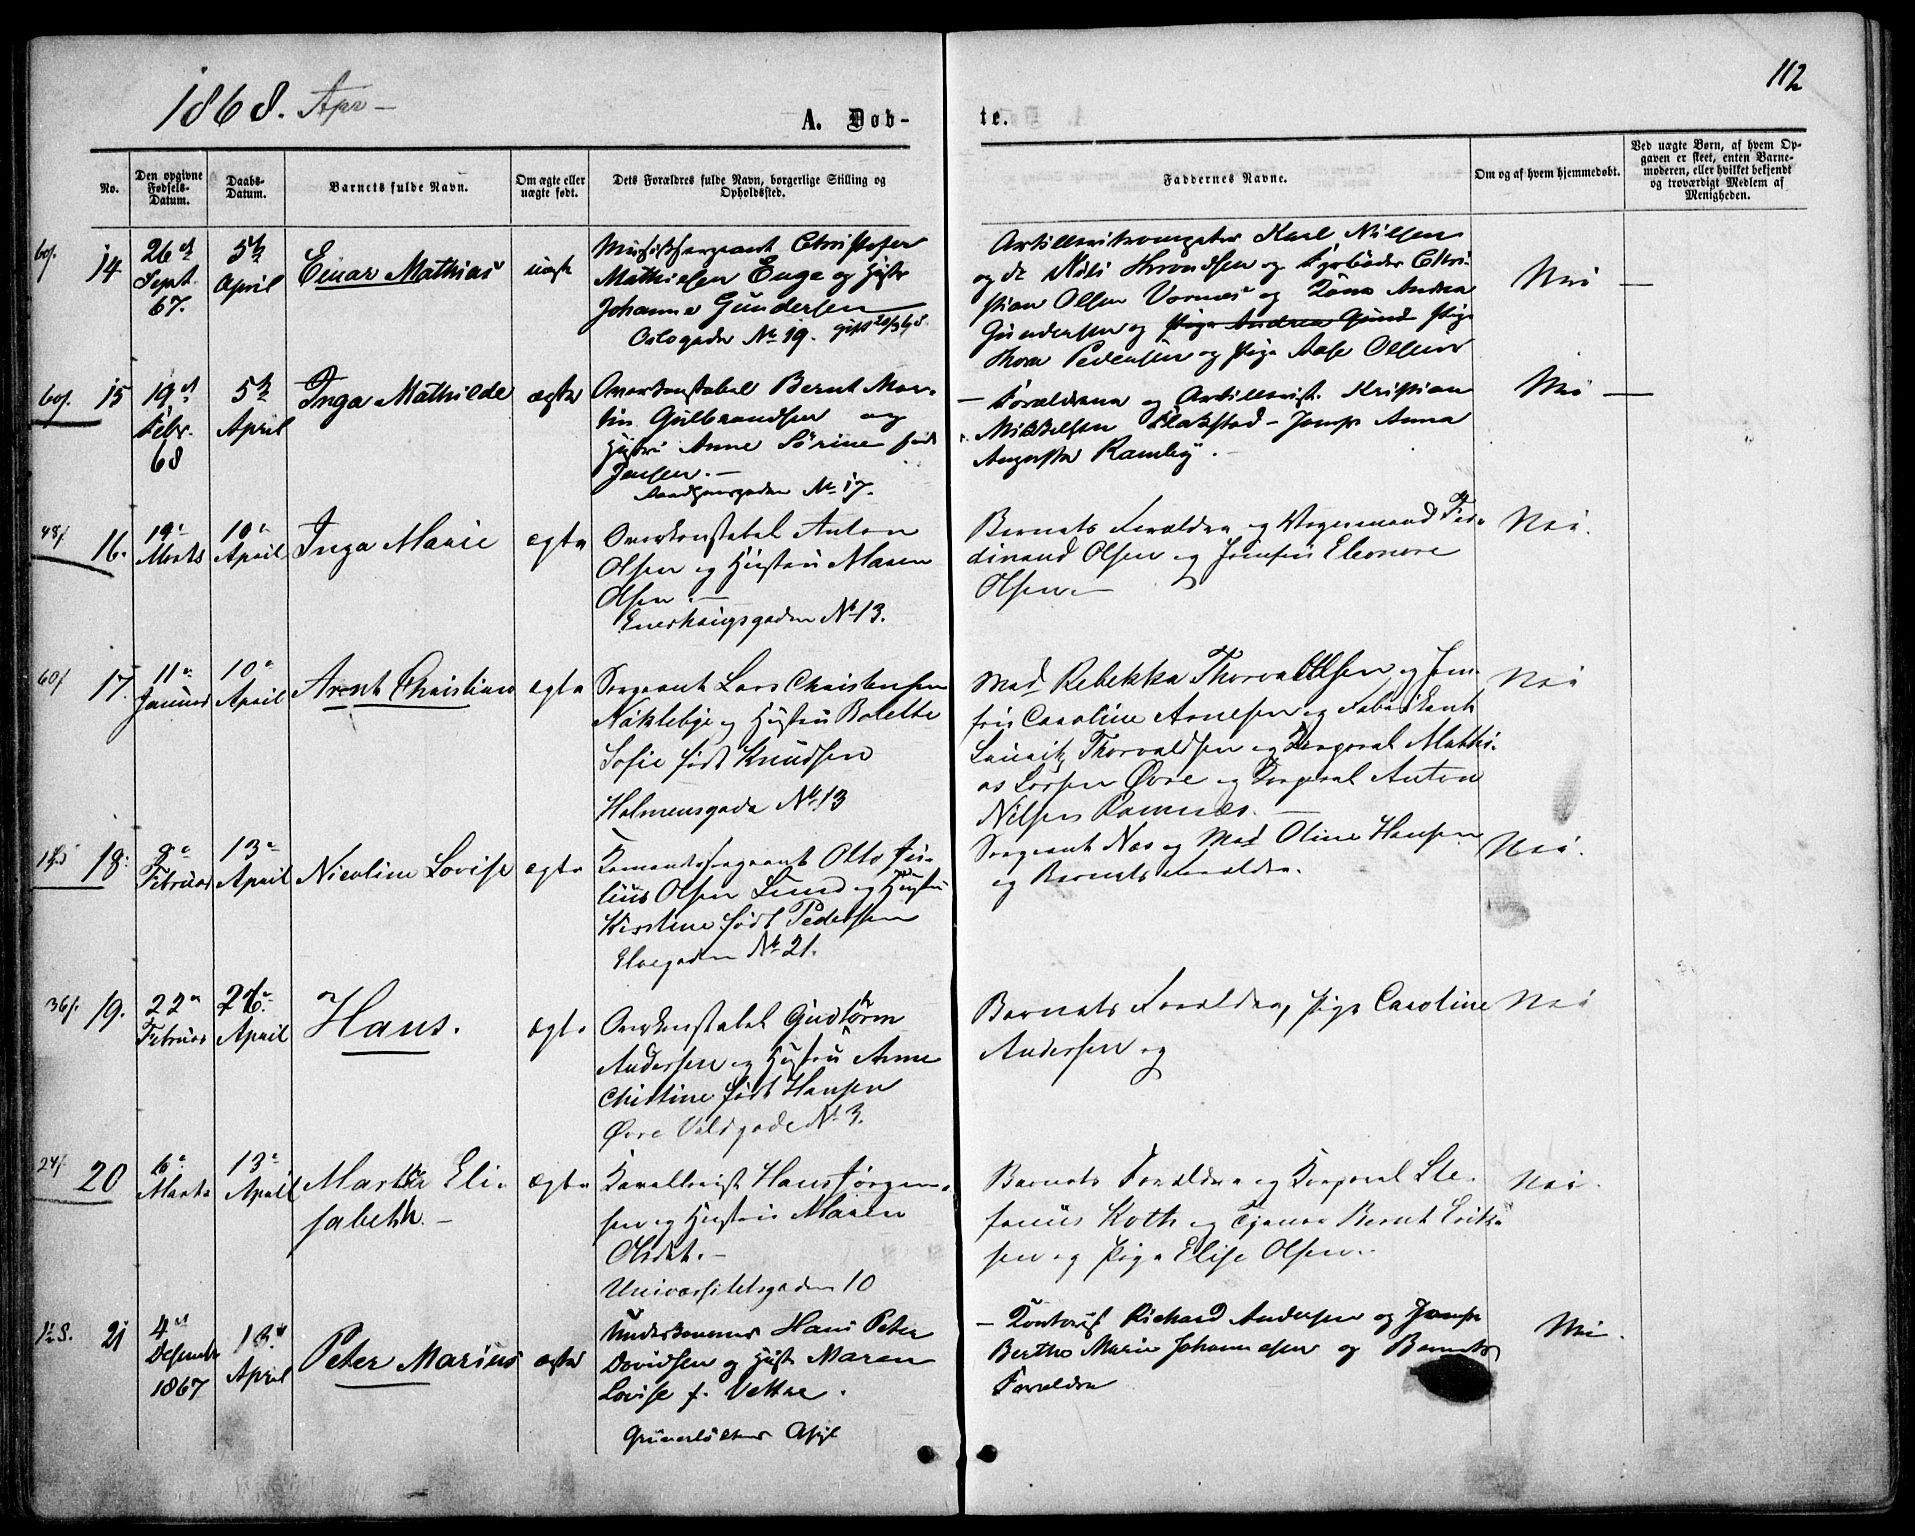 1868. Apr –
112
A. Døb-
te.
No.
Den opgivne Fødsels-Datum.
Daabs-Datum.
Barnets fulde Navn.
Om ægte eller uægte født.
Dets Forældres fulde Navn, borgerlige Stilling og Opholdssted.
Faddernes Navne.
Om og af hvem hjemmedøbt.
Ved uægte Børn, af hvem Op-
gaven er skeet, enten Barne-
moderen, eller hvilket bekjendt
og troværdigt Medlem af
Menigheden.
14
26 Sept. 67.
5te April
Einar Mathias
uægte
Christofer
Mathiesen Enge og Hustr
Johanne Gundersen
Oslogaden No 19. gift
Karl Nilsen
og
Christian Olsen Vormnes og Andrea
Gundersen og Pige Andrea Gund Pige
Pedersen og Pige Aase Olsen
Nei —
15
19d Febr. 68
5te April
Inga Mathilde
ægte
Overkonstabel Bernt Mar-
tin Gulbrandsen og
Hustru Anne Sørine født
Jensen. —
No 17.
— Forældrene og Artillerist Kristian
Mikkelsen Flakstad – Jomfr Anna
Augusta Ramby.
Nei —
16.
19e Marts
10e April
Inga Marie
ægte
Overkonstabel Anton
Olsen og Hustru Maren
Olsen. —
Enerhougsgaden No 13.
Barnets Forældre og Vognmand Fer-
dinand Olsen og Jomfru Eleonore
Olsen. —
Nei.
17.
11e Januar
10e April
Arnt Christian
ægte
Sergeant Lars Christensen
Nøklebye og Hustru Bolette
Sofie født Knudsen
Holmensgade No 13
Mad Rebekka Thorvaldsen og Jom-
fru Caroline Arnesen og Fabrikant
Lauritz Thorvaldsen og Korporal Mathi-
as Larsen Øvre og Korporal Anton
Nilsen Ramnes. —
Nei
18.
Februar
13e April
Nicoline Lovise
ægte
Otto Ju-
lius Olsen Lund og Hustru
Kirstine født Pedersen
Elvegaden No 21.
Sergeant Næs og Mad Oline Hansen
og Barnets Forældre.
Nei.
36f.
19.
22e Februar
26. April
Hans.
ægte
Overkonstabel Gudtorm
Andersen og Hustru Anne
Christine født Hansen
Øvre Voldgade No 3.
Barnets Forældre, Pige Caroline
Andersen og
Nei
20
6e Marts
13e April
Marthe Eli-
sabeth. —
ægte
Kavallerist Hans Jørgen-
sen og Hustru Maren
Olsdt. —
Universitetsgaden 10
Barnets Forældre og Korporal Ste-
fanus Koth og Tjener Bernt Erik-
sen og Pige Elise Olsen. —
Nei.
21
4d Desember 1867
13. April
Peter Marius
ægte
Underkanoner Hans Peter
Davidsen og Hustr Maren
Lovise f. Vettre.
Grünerløkken
— Kontorist Richard Andersen og Jomfr
Berthe Marie Johannesen og Barnets
Forældre
Nei.